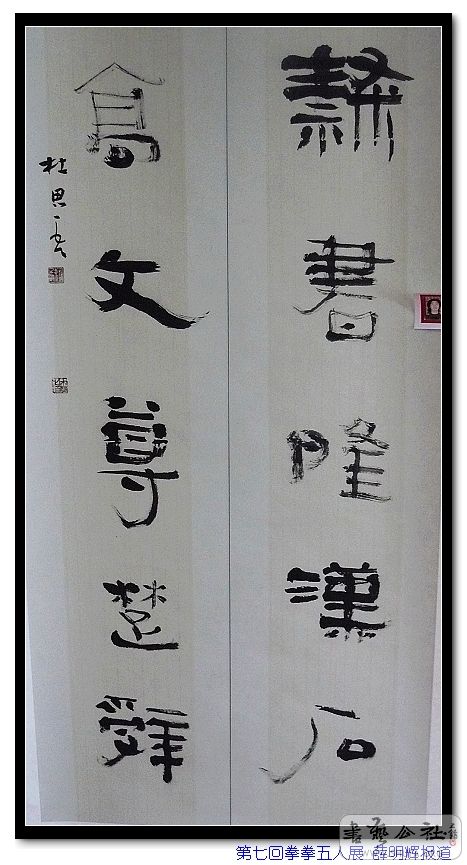 隸書隆漢石
高文尊楚辭
杜思
書藝公社
第七回拳拳五人展 薛明辉报道